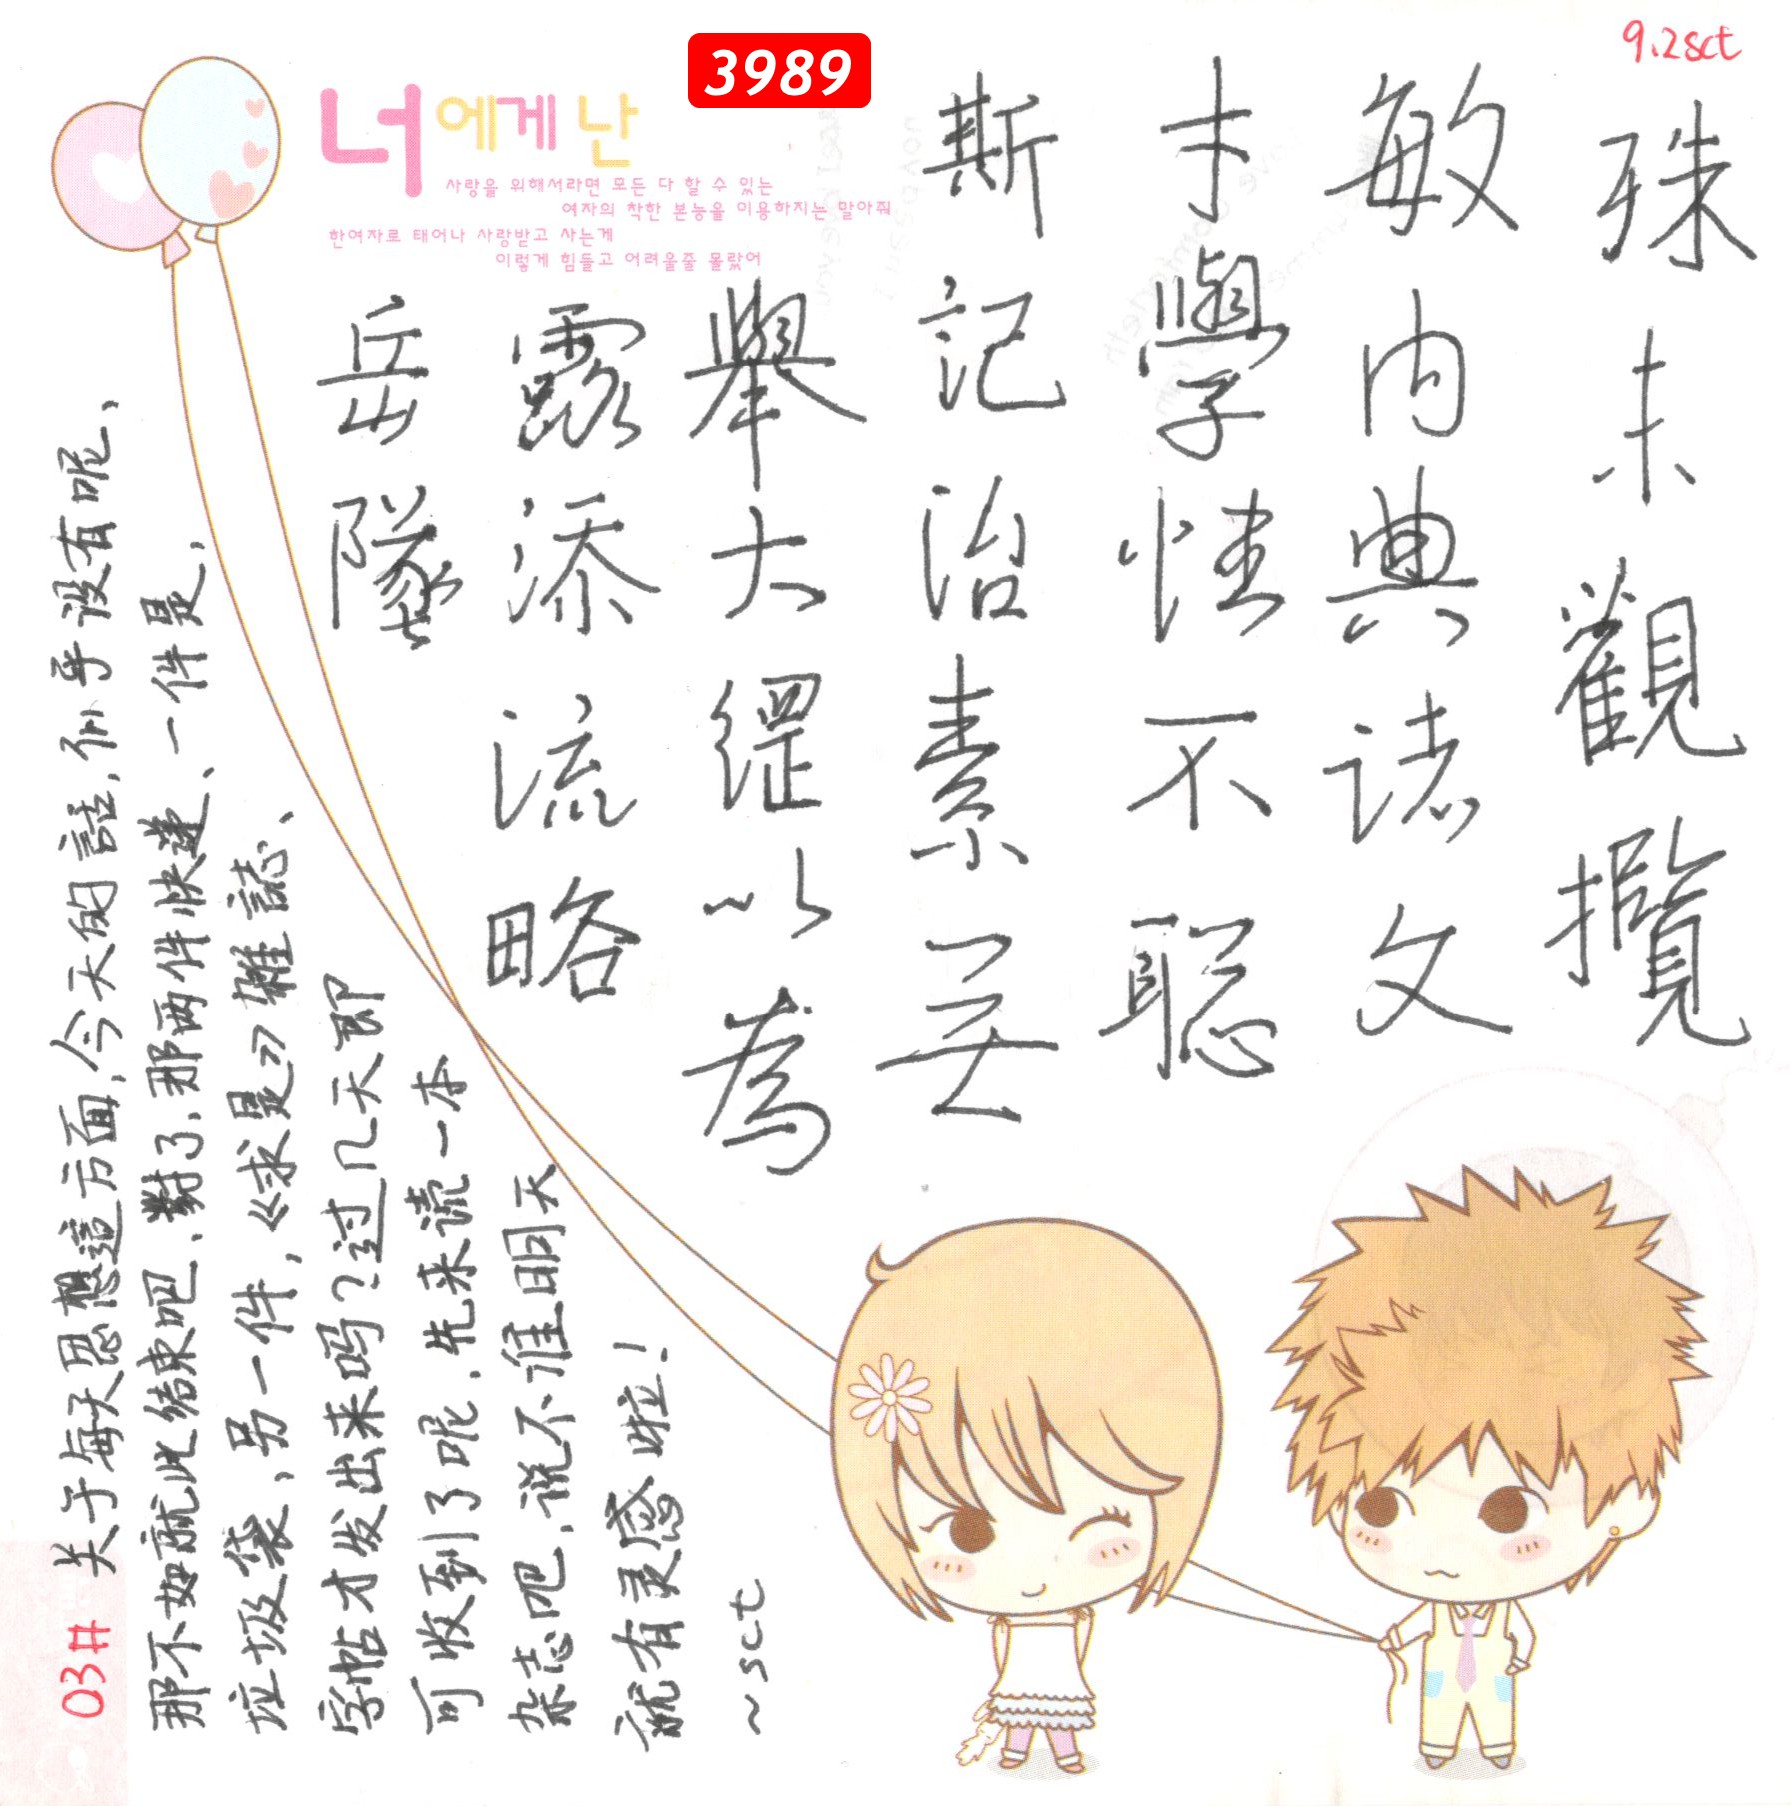 9.2sct
3989
너에게 난
사랑을 위해서라면 모든 다 할 수 있는
여자의 착한 본능을 이용하지는 말아줘
한여자로 태어나 사랑받고 사는게
이렇게 힘들고 어려울줄 몰랐어
殊未觀攬
敏内典諸文
才學性不聪
斯記治素無
舉大纲以為
露添流略
岳墜
03#
关于每天思想這方面,今天的話,似乎没有呢、
那不如就此结束吧、對了,那两件快递、一件是,
垃圾袋,另一件,《求是》雜誌、
字帖才发出来吗?过几天即
可收到了呢,先来读一本
杂志吧,说不准明天
就有灵感啦!
~sct